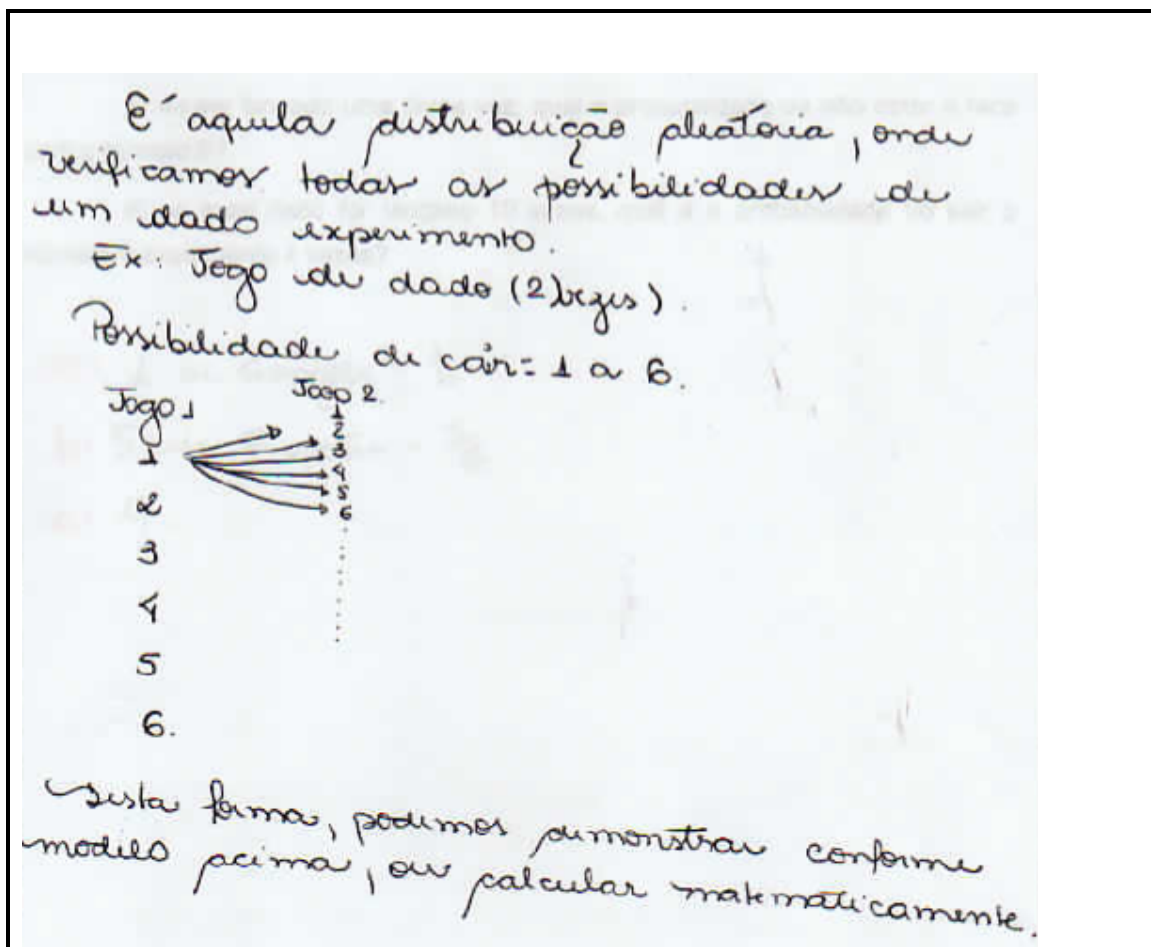 É aquela distribuição aleatória, onde
verificamos todas as possibilidades de
um dado experimento.
Ex: Jogo de dado (2 vezes).
Possibilidade de cair = 1 a 6.
Jogo 1 Jogo 2.
1
2
1 3
4
5
2 6
3
4
5
6.
Desta forma, podemos demonstrar conforme
modelo acima, ou calcular matematicamente.